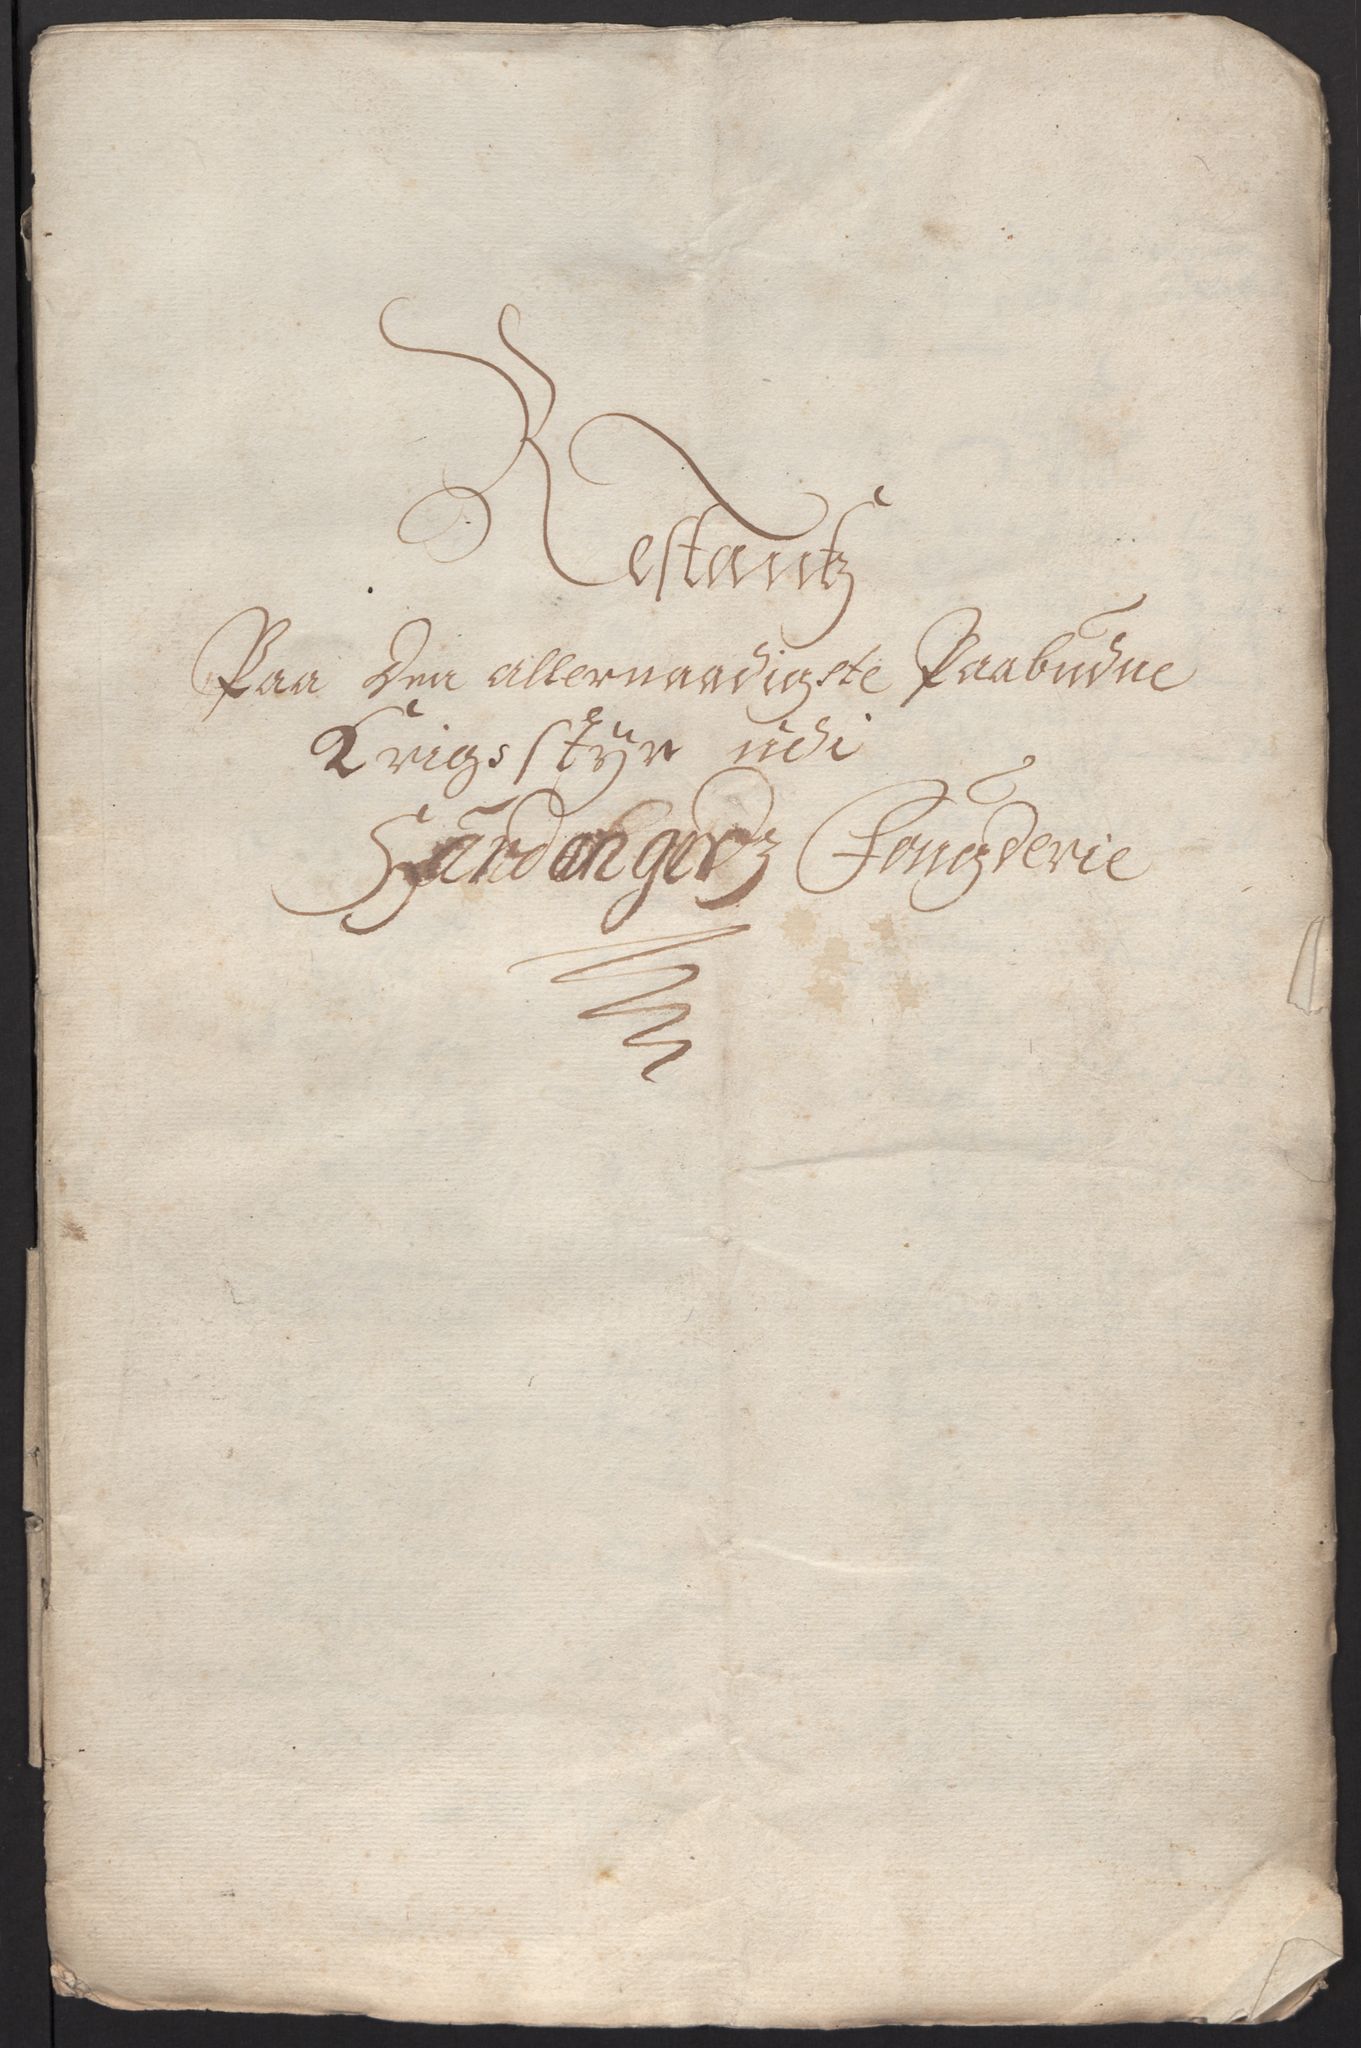 Restantz
Paa den allernaadigste Paabudne
Krigsstÿr udi
Hardangerz Fougderie